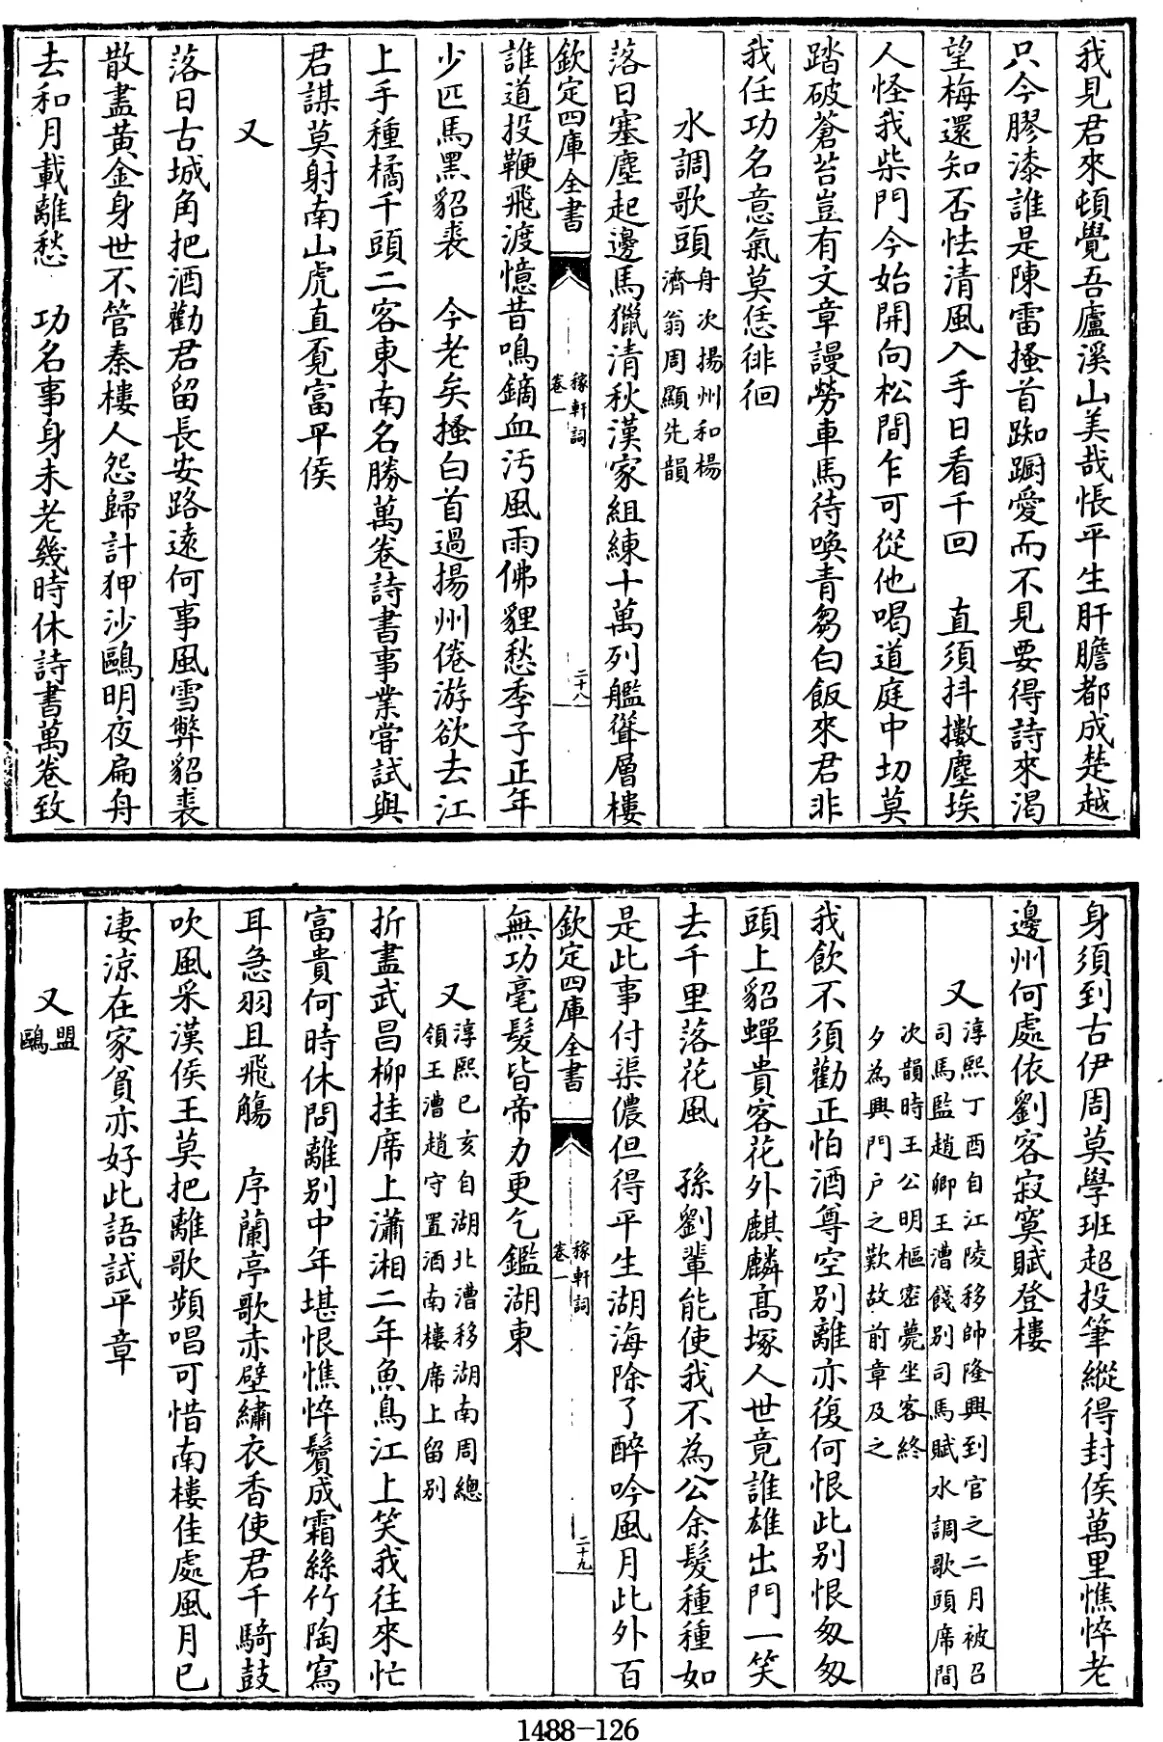 我見君來頓覺吾廬溪山美哉悵平生肝膽都成楚越
只今膠漆誰是陳雷搔首踟躕愛而不見要得詩來渴
望梅還知否怯清風入手日看千回　直須抖擻塵埃
人怪我柴門今始開向松間乍可從他喝道庭中切莫
踏破蒼苔豈有文章謾勞車馬待喚青芻白飯來君非
我任功名意氣莫恁徘徊
水調歌頭
舟次揚州和楊
濟翁周顯先韻
落日塞塵起邊馬獵清秋漢家組練十萬列艦聳層樓
欽定四庫全書
稼軒詞
卷一
二十八
誰道投鞭飛渡憶昔鳴鏑血汚風雨佛貍愁季子正年
少匹馬黑貂裘　今老矣搔白首過揚州倦游欲去江
上手種橘千頭二客東南名勝萬卷詩書事業嘗試與
君謀莫射南山虎直覓富平侯
又
落日古城角把酒勸君留長安路遠何事風雪弊貂裘
散盡黃金身世不管秦樓人怨歸計狎沙鷗明夜扁舟
去和月載離愁　功名事身未老幾時休詩書萬卷致
身須到古伊周莫學班超投筆縱得封侯萬里憔悴老
邊州何處依劉客寂寞賦登樓
又
淳熙丁酉自江陵移帥隆興到官之二月被召
司馬監趙卿王漕餞別司馬賦水調歌頭席間
次韻時王公明樞密薨坐客終
夕為興門户之歎故前章及之
我飲不須勸正怕酒尊空別離亦復何恨此別恨匆匆
頭上貂蟬貴客花外麒麟高塚人世竟誰雄出門一笑
去千里落花風　孫劉輩能使我不為公余髮種種如
是此事付渠儂但得平生湖海除了醉吟風月此外百
欽定四庫全書
稼軒詞
卷一
二十九
無功毫髮皆帝力更乞鑑湖東
又
淳熙已亥自湖北漕移湖南周總
領王漕趙守置酒南樓席上留別
折盡武昌柳挂席上瀟湘二年魚鳥江上笑我往來忙
富貴何時休問離別中年堪恨憔悴鬢成霜絲竹陶寫
耳急羽且飛觴　序蘭亭歌赤壁繡衣香使君千騎鼓
吹風采漢侯王莫把離歌頻唱可惜南樓佳處風月已
凄涼在家貧亦好此語試平章
又
盟
鷗
1488-126